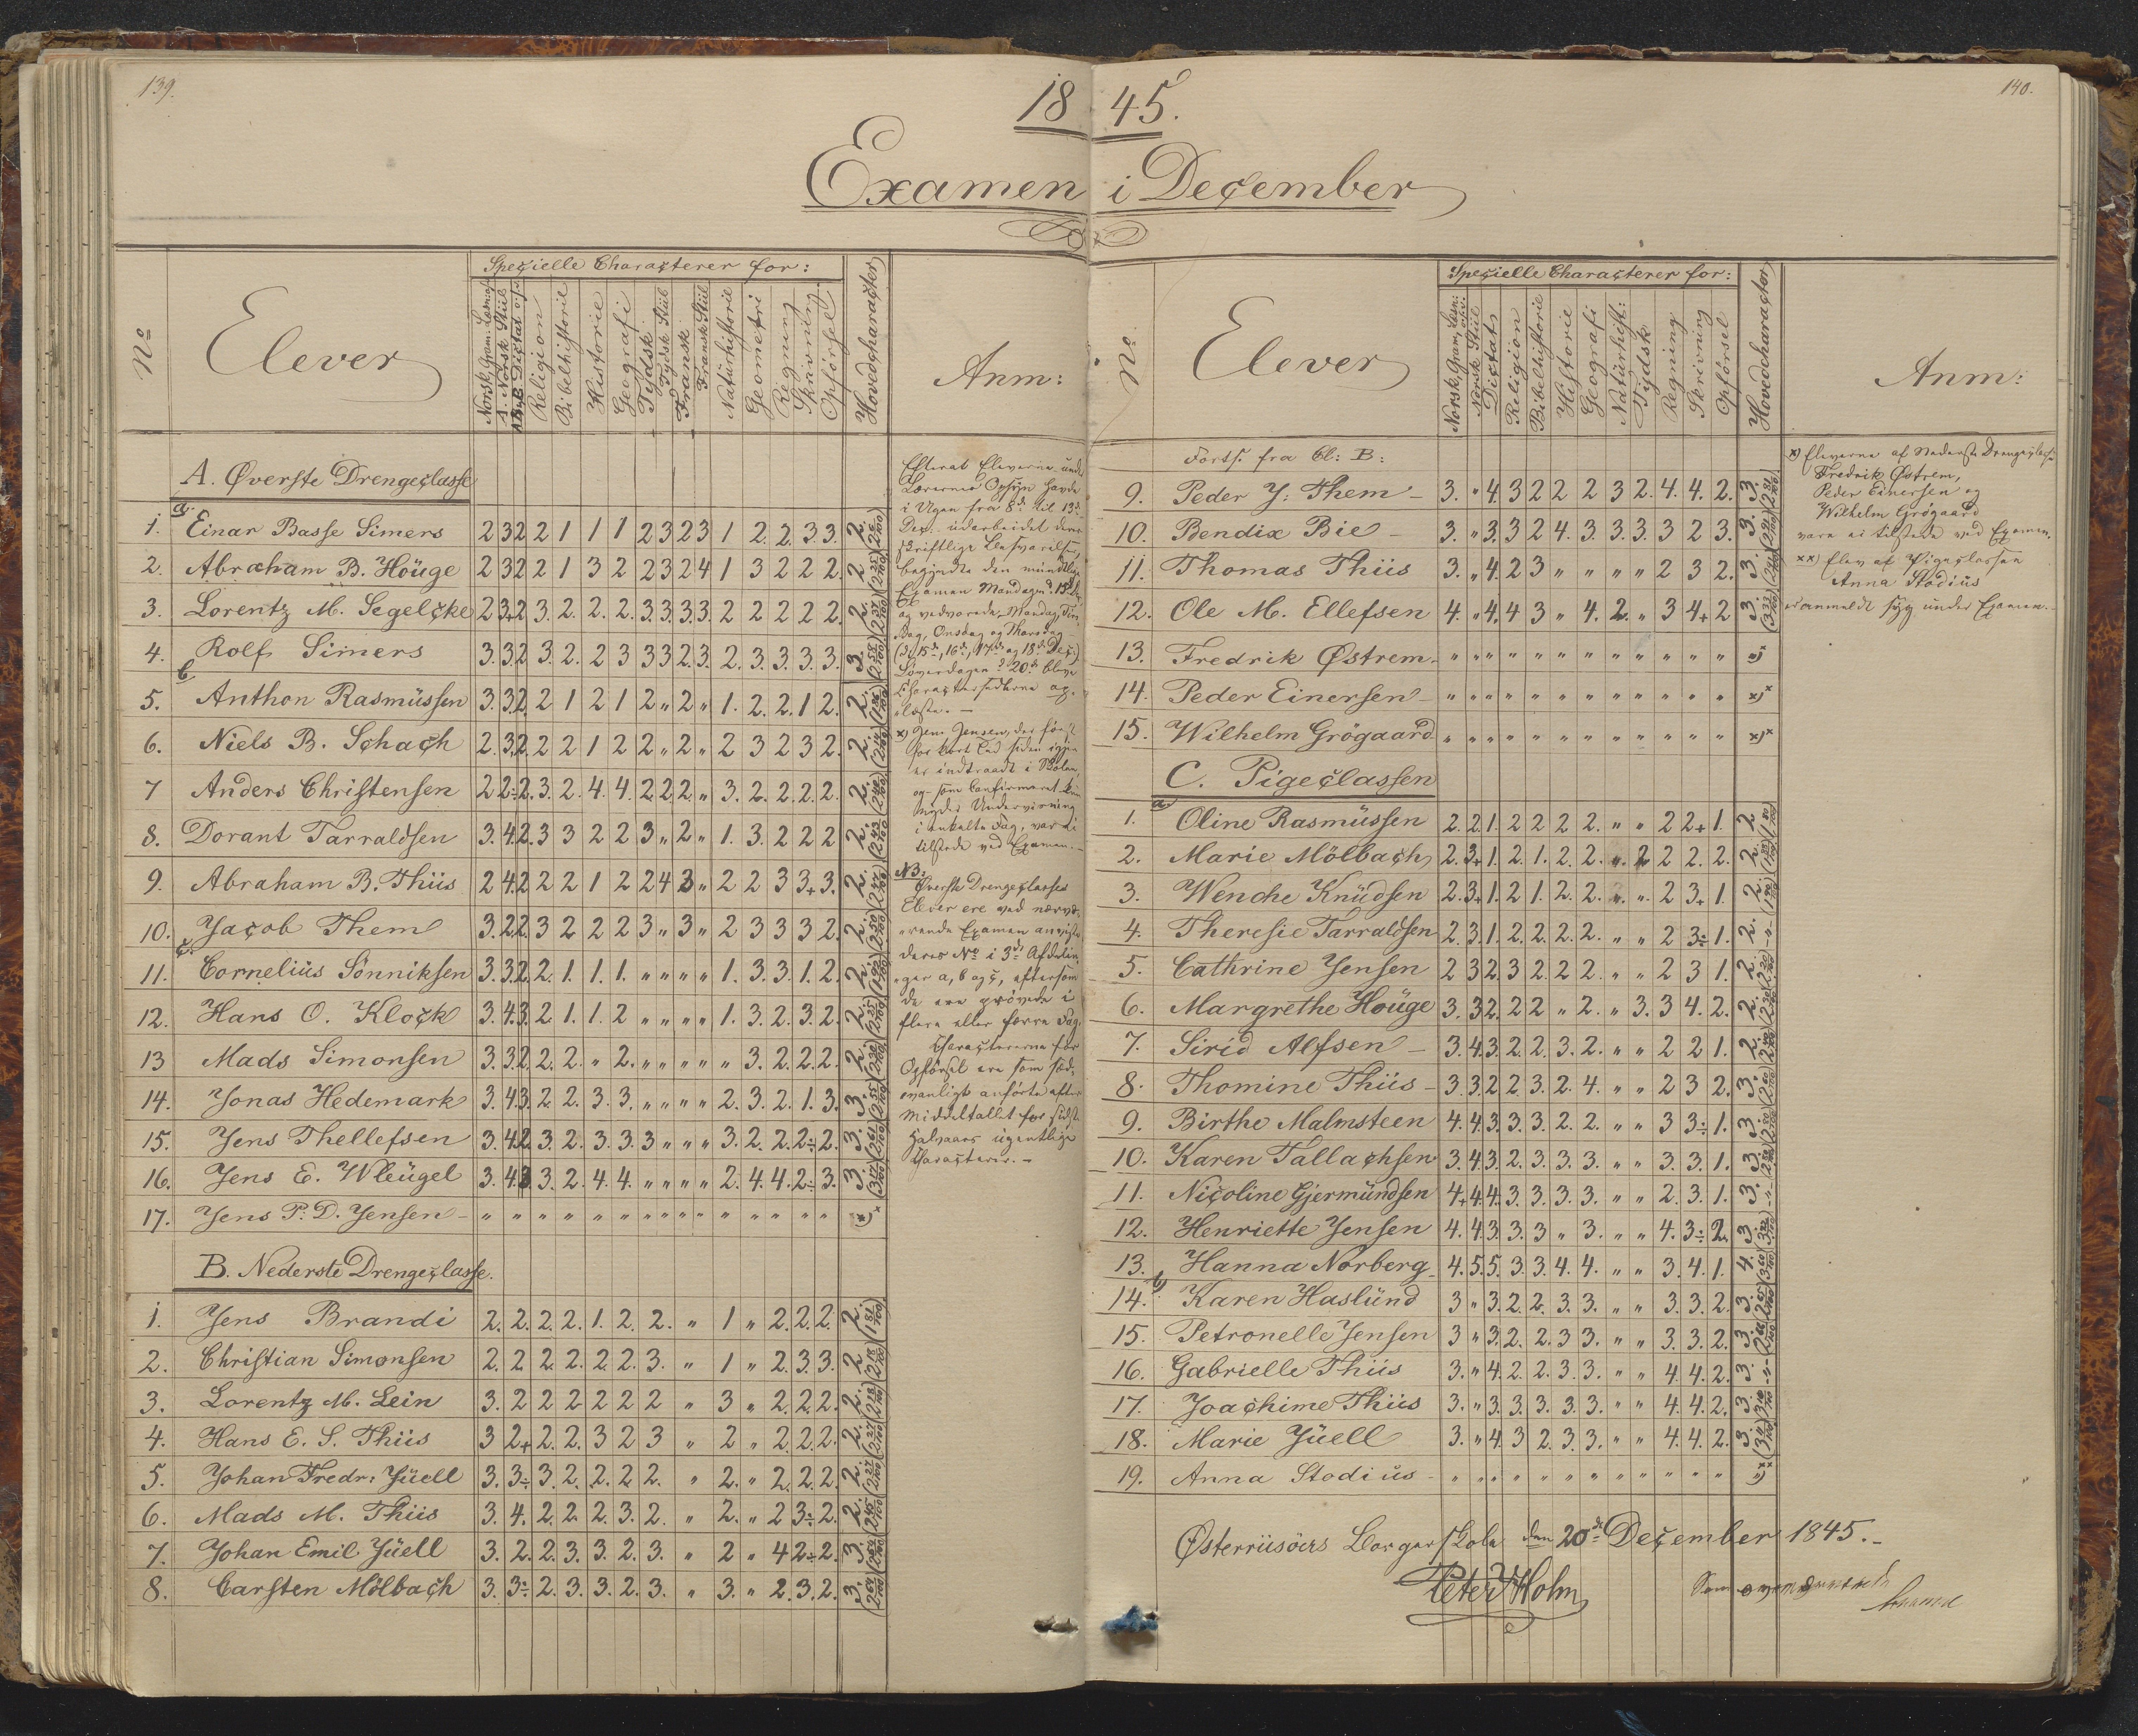 139.
140.
1845.
Examen i December
No
Elever
Specielle Characterer for:
Norsk, Gram. Læsn: osv.
A. Norsk Stiil
Dictat
Religion
Bibelhistorie
Historie
Geografi
Tydsk
Tydsk Stiil
Fransk
Fransk Stiil
Naturhistorie
Geometri
Regning
Skrivning
Opførsel
Hovedcharacter
Anm:
A. Øverste Drengeclasse
a.
1. Einar Basse Simers 2 3 2 2 1 1 1 2 3 2 3 1 2. 2. 3 3. 2.
2. Abraham B. Houge 2 3 2 2 1 3 2 2 3 2 4 1 3 2 2 2. 2 (2 25/100)
3. Lorentz M. Segelcke 2 3+ 2 3. 2. 2. 2. 3. 3. 3. 3. 2 2 2 2 2. 2. (2 37/100)
4. Rolf Simers 3. 3. 2 3. 2. 2 3 3 3 2. 3. 2. 3. 3. 3. 3. 3.
b
5. Anthon Rasmüssen 3. 3. 2. 2 1 2 1 2 „ 2 „ 1. 2. 2. 1 2. 2.
6. Niels B. Schach 2. 3. 2. 2 2 1 2 2 „ 2 „ 2 3 2 3 2. 2.
7 Anders Christensen 2 2÷ 2. 3. 2. 4. 4. 2. 2. 2. „ 3. 2. 2. 2. 2. 2.
8. Dorant Tarraldsen 3. 4. 2. 3 3 2 2 3 „ 2 „ 1. 3. 2 2 2 2. (2 43/100)
9. Abraham B. Thiis 2 4. 2 2 2 1 2 2 4 3 „ 2 2 3 3+ 3. 2. (2 47/100)
10. Jacob Them 3. 2. 2. 3 2 2 2 3 „ 3 „ 2 3 3 3 2. 2. (2 50/100)
c.
11. Cornelius Sönniksen 3. 3. 2. 2. 1. 1. 1. „ „ „ „ 1. 3. 3. 1. 2. 2. (1 92/100)
12. Hans O. Klock 3. 4. 3. 2. 1. 1. 2 „ „ „ „ 1. 3. 2. 3. 2. 2.
13 Mads Simonsen 3. 3. 2. 2. 2. „ 2. „ „ „ „ „ 3. 2. 2. 2. 2.
14. Jonas Hedemark 3. 4. 3. 2. 2. 3. 3. „ „ „ „ 2. 3. 2. 1. 3. 3.
15. Jens Thellefsen 3. 4. 2 3. 2. 3. 3. 3 „ „ „ 3. 2. 2. 2÷ 2. 3. (2 61/100)
16. Jens E. Wleügel 3. 4. 3 3. 2. 4. 4. „ „ „ „ 2. 4. 4. 2÷ 3. 3. (3 17/100)
17. Jens P. D. Jensen - „ „ „ „ „ „ „ „ „ „ „ „ „ „ „ „ x)
B. Nederste Drengeclasse.
1. Jens Brandi 2. 2. 2. 2. 1. 2. 2. „ 1 „ 2. 2. 2. 2. (1 81/100)
2. Christian Simonsen 2. 2 2 2. 2. 2. 3. „ 1 „ 2. 3. 3. 2. (2 18/100)
3. Lorentz M. Lein 3. 2 2 2 2 2 2 „ 3 „ 2. 2. 2. 2. (2 18/100)
4. Hans E. S. Thiis 3 2+ 2. 2. 3 2 3 „ 2 „ 2. 2. 2. 2. (2 27/100)
5. Johan Fredr: Jüell 3. 3÷ 3. 2. 2. 2. 2. „ 2. „ 2. 2. 2. 2. (2 27/100)
6. Mads M. Thiis 3. 4. 2. 2. 2. 3. 2. „ 2. „ 2 3÷ 2. 2. (2 45/100)
7. Johan Emil Jüell 3. 2. 2. 3. 3. 2. 3. „ 2 „ 4 2÷ 2. 3.
8. Carsten Mölbach 3. 3÷ 2. 3. 3. 2. 3. „ 3. „ 2. 3. 2. 3. (2 64/100)
Efterat Eleverne under
Lærernes Opsyn havde
i Ugen fra 8de til 13de
Dec. udarbeidet deres
skriftlige Besvarelser,
begyndte den mundtlige
Examen Mandag d. 15de Dec.
og vedvarede Mandag, Tirs-
dag, Onsdag og Thorsdag
(d. 15de, 16de, 17de og 18de Dec.)
Löverdagen d. 20de bleve
Charactersedlerne op-
læste. —
x) Jens Jensen, der först
for kort Tid siden igjen
er indtraadt i Skolen,
og som Confirmeret kun
nyder Undervisning
i enkelte Fag, var ei
tilstede ved Examen. —
NB.
Øverste Drengeclasses
Elever ere ved nærvæ-
rende Examen anviste
deres No i 3de Afdelin-
ger a, b og c, eftersom
de ere prövede i
flere eller færre Fag.
Charactererne for
Opförsel ere som sæd-
vanligt anförte efter
Middeltallet for sidste
Halvaars ugentlige
Characterer. —
No
Elever
Specielle Characterer for:
Norsk, Gram, Læsn: osv:
Norsk Stiil
Dictat
Religion
Bibelhistorie
Historie
Geografi
Naturhist:
Tydsk
Regning
Skrivning
Opførsel
Hovedcharacter
Anm:
Forts. fra Cl: B:
9. Peder J: Them - 3. „ 4. 3 2 2 2 3 2. 4. 4. 2. 3.
10. Bendix Bie - 3. „ 3. 3 2 4. 3. 3. 3. 3 2 3. 3. (2 91/100)
11. Thomas Thiis 3. „ 4. 2 3 „ „ „ „ 2 3 2. 3.
12. Ole M. Ellefsen 4. „ 4. 4 3 „ 4. 2. „ 3 4+ 2 3. (3 33/100)
13. Fredrik Østrem. „ „ „ „ „ „ „ „ „ „ „ „ x)
14. Peder Einersen - „ „ „ „ „ „ „ „ „ „ „ „ x)
15. Wilhelm Grögaard „ „ „ „ „ „ „ „ „ „ „ „ x)
C. Pigeclassen
a
1. Oline Rasmüssen 2. 2. 1. 2 2 2 2. „ „ 2 2+ 1. 2
2. Marie Mölbach 2. 3+ 1. 2. 1. 2. 2. „ 2 2 2. 2. 2.
3. Wenche Knüdsen 2. 3+ 1. 2 1. 2. 2. „ „ 2 3+ 1. 2. (1 90/100)
4. Theresie Tarraldsen 2. 3. 1. 2. 2. 2. 2. „ „ 2 3÷ 1. 2. -„-
5. Cathrine Jensen 2 3 2. 3 2. 2 2. „ „ 2 3 1. 2. (2 20/100)
6. Margrethe Houge 3. 3 2. 2 2 „ 2. „ 3. 3 4. 2. 2.
7. Sirid Alfsen - 3. 4. 3. 2. 2. 3. 2. „ „ 2 2 1. 2.
8. Thomine Thiis - 3. 3. 2 2 3. 2. 4. „ „ 2 3 2. 3. (2 60/100)
9. Birthe Malmsteen 4. 4. 3. 3. 3. 2. 2. „ „ 3 3÷ 1. 3. (2 80/100)
10. Karen Tallachsen 3. 4. 3. 2. 3. 3. 3. „ „ 3. 3. 1. 3.
11. Nicoline Gjermündsen 4+ 4. 4. 3. 3. 3. 3. „ „ 2. 3. 1. 3. -„-
12. Henriette Jensen 4. 4. 3. 3. 3 „ 3. „ „ 4. 3÷ 2. 3
13. Hanna Norberg 4. 5. 5. 3. 3. 4. 4. „ „ 3. 4. 1. 4. (3 60/100)
b)
14. Karen Haslünd 3 „ 3. 2. 2. 3. 3. „ „ 3. 3. 2. 3.
15. Petronelle Jensen 3 „ 3. 2. 2. 3 3. „ „ 3. 3. 2. 3.
16. Gabrielle Thiis 3. „ 4. 2. 2. 3. 3. „ „ 4. 4. 2. 3. -„-
17. Joachime Thiis 3. „ 3. 3. 3. 3. 3. „ „ 4. 4. 2. 3.
18. Marie Jüell 3. „ 4. 3 2. 3. 3. „ „ 4. 4. 2. 3.
19. Anna Stodius - „ „ „ „ „ „ „ „ „ „ „ „ xx)
x) Eleverne af Nederste Drengeclasse
Fredrik Østrem,
Peder Einersen og
Wilhelm Grögaard
vare ei tilstede ved Examen.
xx) Elev af Pigeclassen
Anna Stodius
er anmeldt syg under Examen. -
Østerriisöers Borgerskole den 20de December 1845. -
Peter Holm